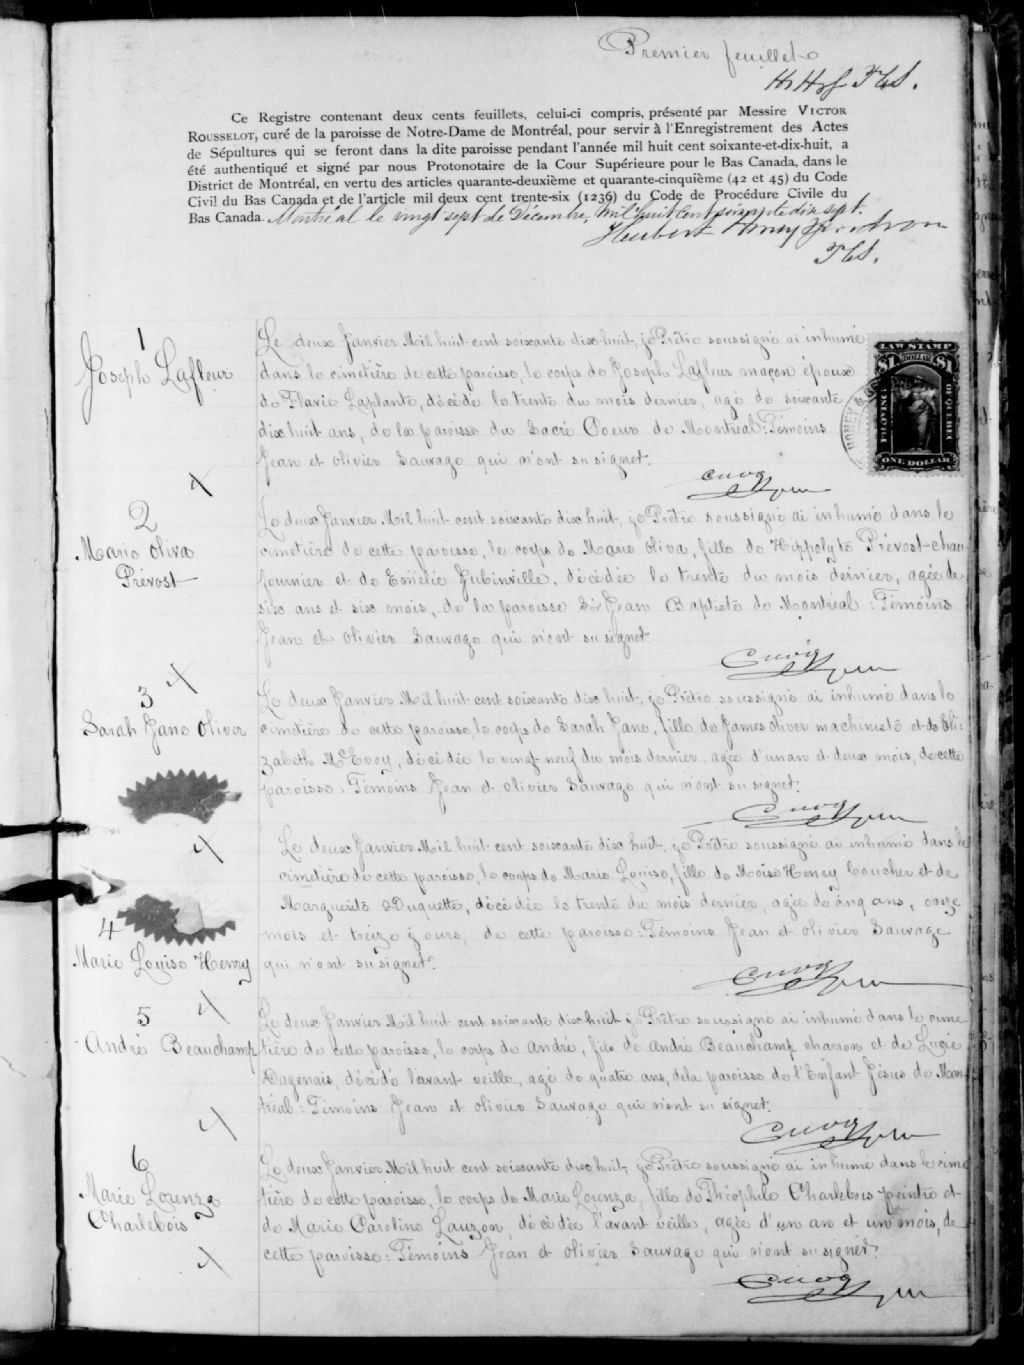 Premier feuillet
Ce Registre contenant deux cents feuillets, celui-ci compris, présenté par Messire VICTOR
ROUSSELOT, curé de la paroisse de Notre-Dame de Montréal, pour servir à l'Enregistrement des Actes
de Sépultures qui se feront dans la dite paroisse pendant l'année mil huit cent soixante-et-dix-huit, a
été authentiqué et signé par nous Protonotaire de la Cour Supérieure pour le Bas Canada, dans le
District de Montréal, en vertu des articles quarante-deuxième et quarante-cinquième (42 et 45) du Code
Civil du Bas Canada et de l'article mil deux cent trente-six (1236) du Code de Procédure Civile du
Bas Canada. Montréal le vingt sept de Décembre, mil huit cent soixante dix sept.
1
Joseph Lafleur
Le deux Janvier Mil huit-cent soixante dix-huit, je Prêtre soussigné ai inhumé
dans le cimetière de cette paroisse, le corps de Joseph Lafleur maçon époux
de Flavie Laplante, décédé le trente du mois dernier, agé de soixante
dix huit ans, de la paroisse du Sacré Coeur de Montréal: Témoins
Jean et Olivier Sauvage qui n'ont su signer.
LAW STAMP
$1 DOLLAR $1
PROVINCE OF QUEBEC
ONE DOLLAR
2
Marie Oliva
Prévost
Le deux Janvier Mil huit-cent soixante dix huit, je Prêtre soussigné ai inhumé dans le
cimetière de cette paroisse, le corps de Marie Oliva, fille de Hippolyte Prévost chau-
fournier et de Emélie Jubinville, décédée le trente du mois dernier, agée de
six ans et six mois, de la paroisse St Jean Baptiste de Montréal: Témoins
Jean et Olivier Sauvage qui n'ont su signer
3
Sarah Jane Oliver
Le deux Janvier Mil huit-cent soixante dix huit, je Prêtre soussigné ai inhumé dans le
cimetière de cette paroisse, le corps de Sarah Jane, fille de James Oliver machiniste et de Eli-
zabeth McEvoy, décédée le vingt-neuf du mois dernier, agée d'un an et deux mois, de cette
paroisse: Témoins Jean et Olivier Sauvage qui n'ont su signer.
4
Marie Louise Henry
Le deux Janvier Mil huit-cent soixante dix huit, je Prêtre soussigné ai inhumé dans le
cimetière de cette paroisse, le corps de Marie Louise, fille de Moise Henry boucher et de
Marguerite Duquette, décédée le trente du mois dernier, agée de cinq ans, onze
mois et treize jours, de cette paroisse: Témoins Jean et Olivier Sauvage
qui n'ont su signer.
5
André Beauchamp
Le deux Janvier Mil huit cent soixante dix huit je Prêtre soussigné ai inhumé dans le cime
tière de cette paroisse, le corps de André, fils de André Beauchamp charron et de Lucie
Dagenais, décédé l'avant veille, agé de quatre ans, de la paroisse de l'Enfant Jésus de Mon-
tréal: Témoins Jean et Olivier Sauvage qui n'ont su signer.
6
Marie Lorenza
Charlebois
Le deux Janvier Mil huit cent soixante dix huit, je Prêtre soussigné ai inhumé dans le cime
tière de cette paroisse, le corps de Marie Lorenza, fille de Théophile Charlebois peintre et
de Marie Caroline Lauzon, décédée l'avant veille, agée d'un an et un mois, de
cette paroisse: Témoins Jean et Olivier Sauvage qui n'ont su signer.